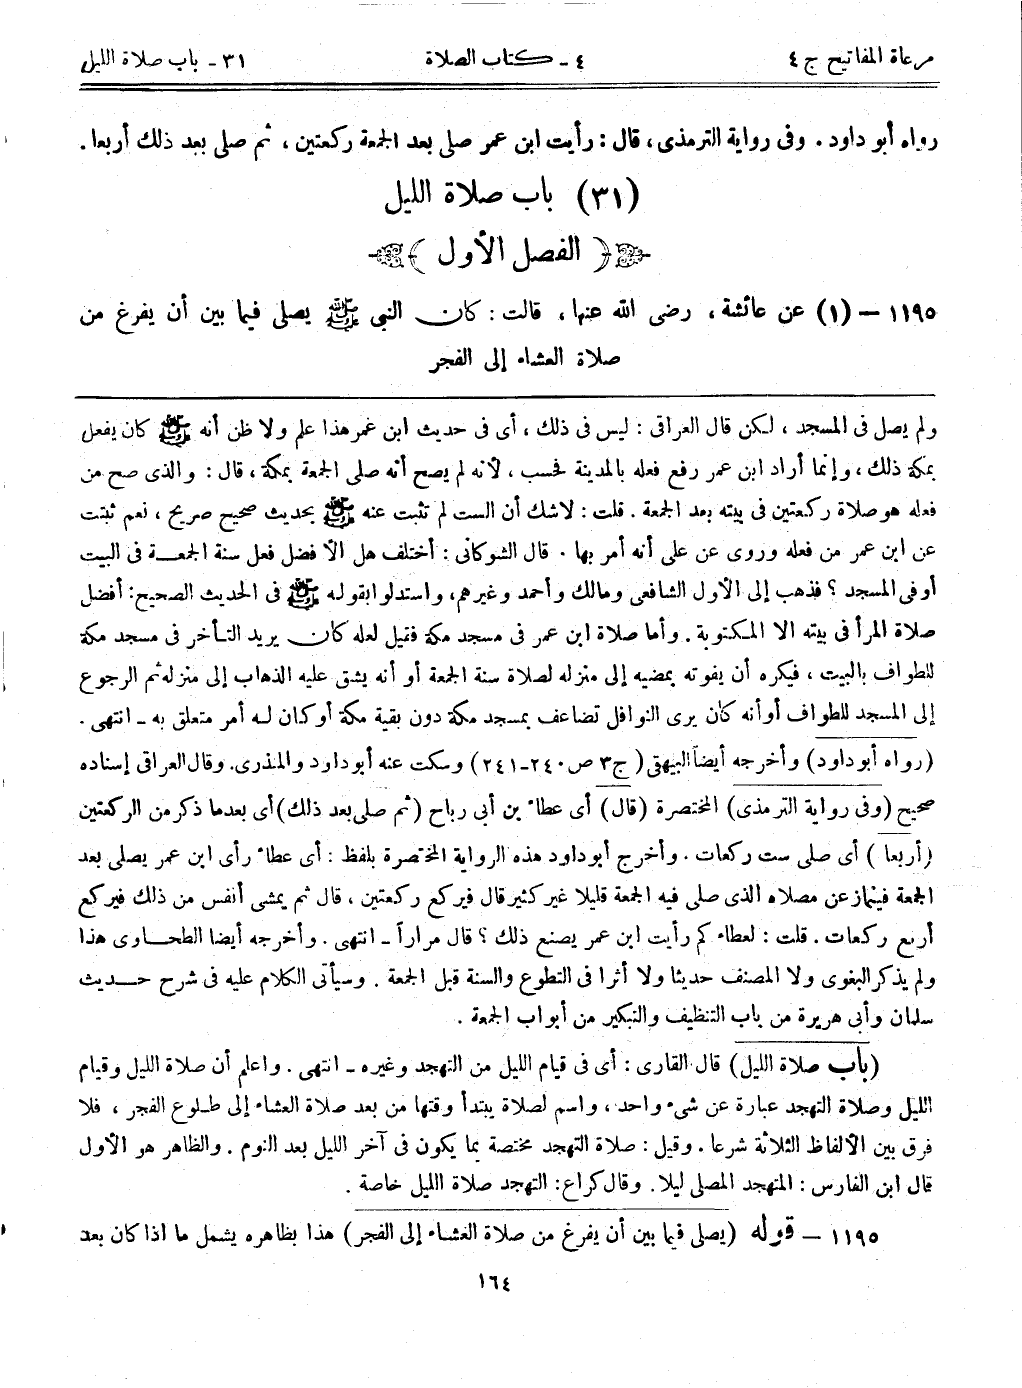 مرعاة المفاتيح ج ٤ ٤ ـ كتاب الصلاة ٣١ ـ باب صلاة الليل
رواه أبو داود . وفى رواية الترمذى، قال : رأيت ابن عمر صلى بعد الجمعة ركعتين ، ثم صلى بعد ذلك أربعا .
(٣١) باب صلاة الليل
﴿ الفصل الأول ﴾
١١٩٥ — (١) عن عائشة ، رضى الله عنها ، قالت : كان النبى ﷺ يصلى فيما بين أن يفرغ من
صلاة العشاء إلى الفجر
ولم يصل فى المسجد ، لكن قال العراقى : ليس فى ذلك ، أى فى حديث ابن عمر هذا علم ولا ظن أنه ﷺ كان يفعل
بمكة ذلك ، وإنما أراد ابن عمر رفع فعله بالمدينة فحسب ، لأنه لم يصح أنه صلى الجمعة بمكة ، قال : والذى صح من
فعله هو صلاة ركعتين فى بيته بعد الجمعة . قلت : لاشك أن الست لم تثبت عنه ﷺ بحديث صحيح صريح ، نعم ثبتت
عن ابن عمر من فعله وروى عن على أنه أمر بها . قال الشوكانى : أختلف هل الأفضل فعل سنة الجمعة فى البيت
أوفى المسجد ؟ فذهب إلى الأول الشافعى ومالك وأحمد وغيرهم، واستدلوا بقوله ﷺ فى الحديث الصحيح: أفضل
صلاة المرأ فى بيته الا المكتوبة . وأما صلاة ابن عمر فى مسجد مكة فقيل لعله كان يريد التأخر فى مسجد مكة
للطواف بالبيت ، فيكره أن يفوته بمضيه إلى منزله لصلاة سنة الجمعة أو أنه يشق عليه الذهاب إلى منزله ثم الرجوع
إلى المسجد للطواف أوأنه كان يرى النوافل تضاعف بمسجد مكة دون بقية مكة أو كان له أمر متعلق به ـ انتهى .
(رواه أبو داود) وأخرجه أيضاً البيهقى (ج٣ ص٢٤٠-٢٤١) وسكت عنه أبو داود والمنذرى. وقال العراقى إسناده
صحيح (وفى رواية الترمذى) المختصرة (قال) أى عطاء بن أبى رباح (ثم صلى بعد ذلك) أى بعد ما ذكر من الركعتين
(أربعا) أى صلى ست ركعات . وأخرج أبو داود هذه الرواية المختصرة بلفظ : أى عطاء رأى ابن عمر يصلى بعد
الجمعة فينماز عن مصلاه الذى صلى فيه الجمعة قليلا غير كثير قال فيركع ركعتين ، قال ثم يمشى أنفس من ذلك فيركع
أربع ركعات . قلت : لعطاء كم رأيت ابن عمر يصنع ذلك ؟ قال مراراً ـ انتهى . وأخرجه أيضا الطحاوى هذا
ولم يذكر البغوى ولا المصنف حديثا ولا أثرا فى التطوع والسنة قبل الجمعة . وسيأتى الكلام عليه فى شرح حديث
سلمان وأبى هريرة من باب التنظيف والتبكير من أبواب الجمعة .
(باب صلاة الليل) قال القارى : أى فى قيام الليل من التهجد وغيره ـ انتهى . واعلم أن صلاة الليل وقيام
الليل وصلاة التهجد عبارة عن شىء واحد ، واسم لصلاة يبتدأ وقتها من بعد صلاة العشاء إلى طلوع الفجر ، فلا
فرق بين الألفاظ الثلاثة شرعا . وقيل : صلاة التهجد مختصة بما يكون فى آخر الليل بعد النوم . والظاهر هو الأول
قال ابن الفارس : المتهجد المصلى ليلا. وقال كراع: التهجد صلاة الليل خاصة .
١١٩٥ — قوله (يصلى فيما بين أن يفرغ من صلاة العشاء إلى الفجر) هذا بظاهره يشمل ما اذا كان بعد
١٦٤